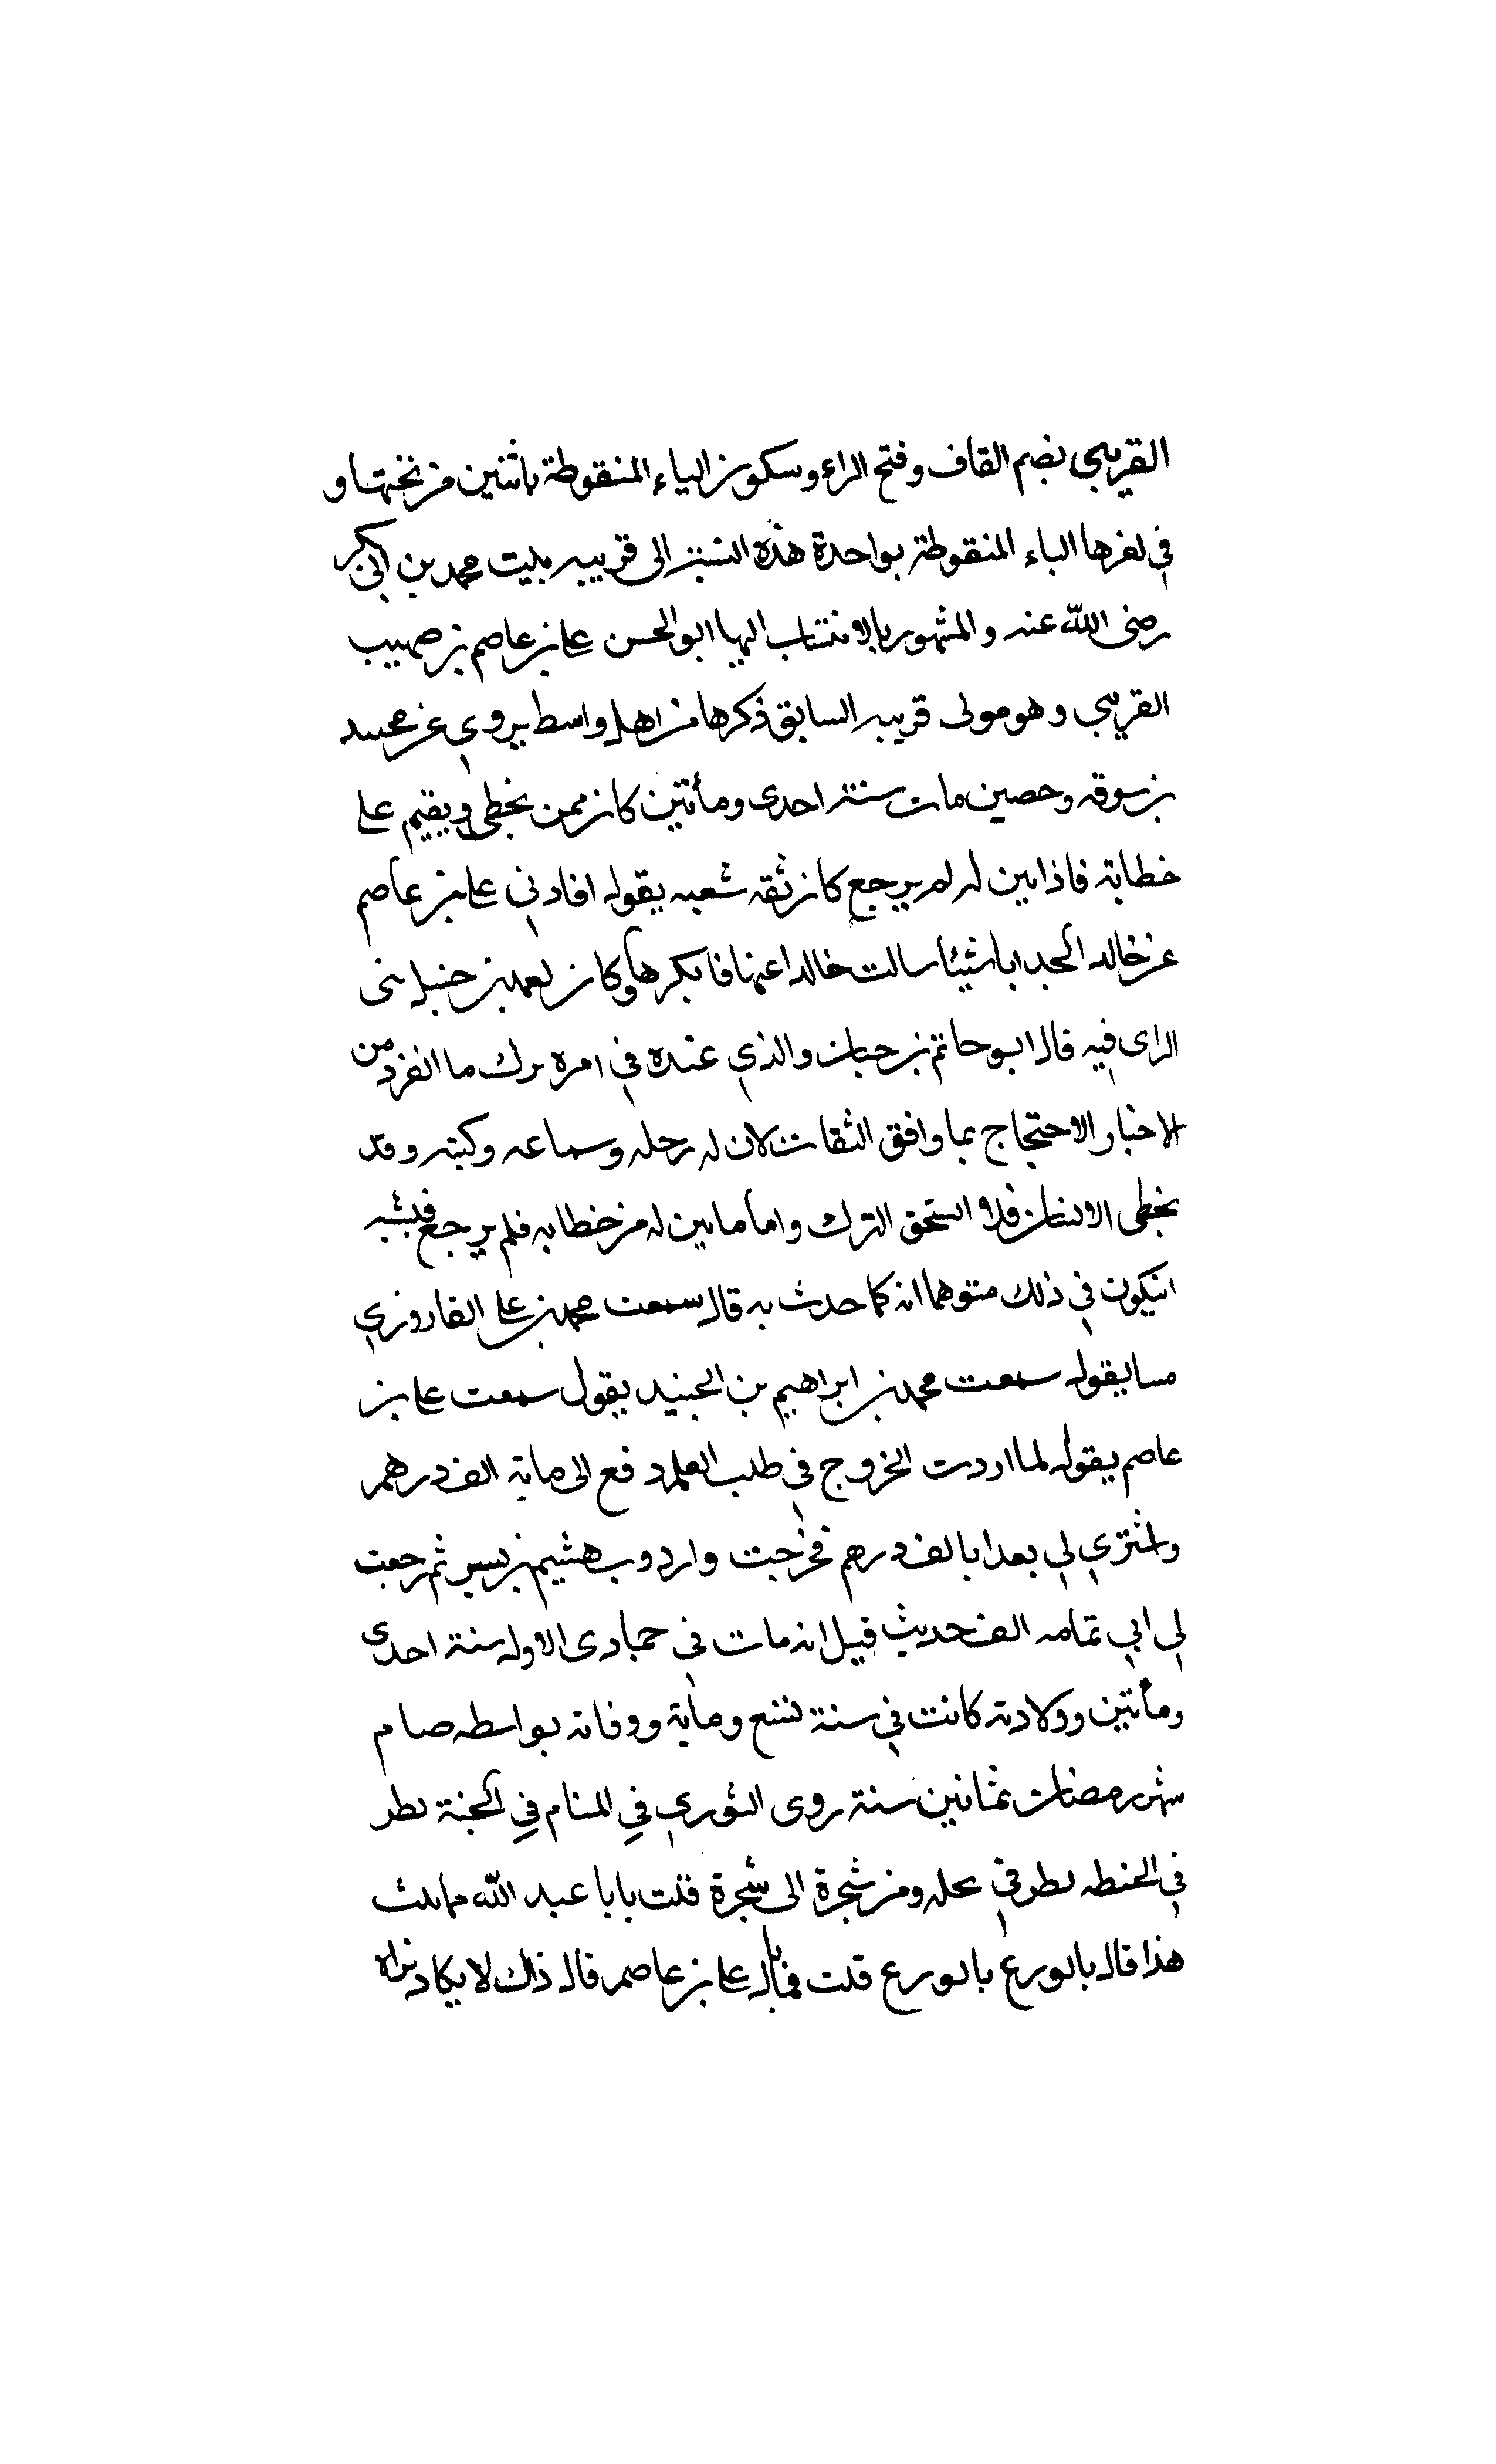 القريبي بضم القاف وفتح الراء وسكون الياء المنقوطة باثنين من تحتها و
في اخرها الباء المنقوطة بواحدة هذه النسبة الى قريبه بليت محمد بن ابي بكر
رضى الله عنه والمشهور بالانتساب اليها ابو الحسن على بن عاصم بن صهيب
القريبي وهو مولى قريبه السابق ذكرها من اهل واسط يروي عن محمد
بن سوقه وحصين مات سنة احدى ومأتين كان ممن يخطى ويقيم على
خطاية فاذا بين له لم يرجع كان ثقه شعبه يقول افادني على بن عاصم
عن خالد الحدا باشيئا سالت خالدا عنها فانكرها وكان احمد بن حنبل سى
الراى فيه قال ابو حاتم بن حبان والذي عنده في امره ترك ما انفرد من
الاخبار الاحتجاج بما وافق الثقات لان له رحله وسماعه وكتبه وقد
يخطى الانسان فلا استحق الترك واما ما بين له من خطايه فلم يرجع فيشبه
انيكون في ذلك متوهما انه كما حدث به قال سمعت محمد بن على الفاروزي
مسا يقول سمعت محمد بن ابراهيم بن الجنيد يقول سمعت على بن
عاصم يقول لما اردت الخروج في طلب العلم دفع الى ماية الف درهم
واشترى لي بعدا بالف درهم فخرجت واردوب هشيم بن بسير ثم رجعت
لي ابي تمامه الف حديث قيل انه مات في جمادى الاوله سنة احدى
ومأتين وولادته كانت في سنة تسع وماية ووفاته بواسطه صام
شهر رمضان ثمانين سنة روى الثوري في المنام في الجنة يطر
في الحنطه يطر في نحله ومن شجرة الى شجرة قلت يابا عبد الله م‍ا نلت
هذا قال بالورع بالورع قلت فما بال على بن عاصم قال ذاك لا يكاد نراه